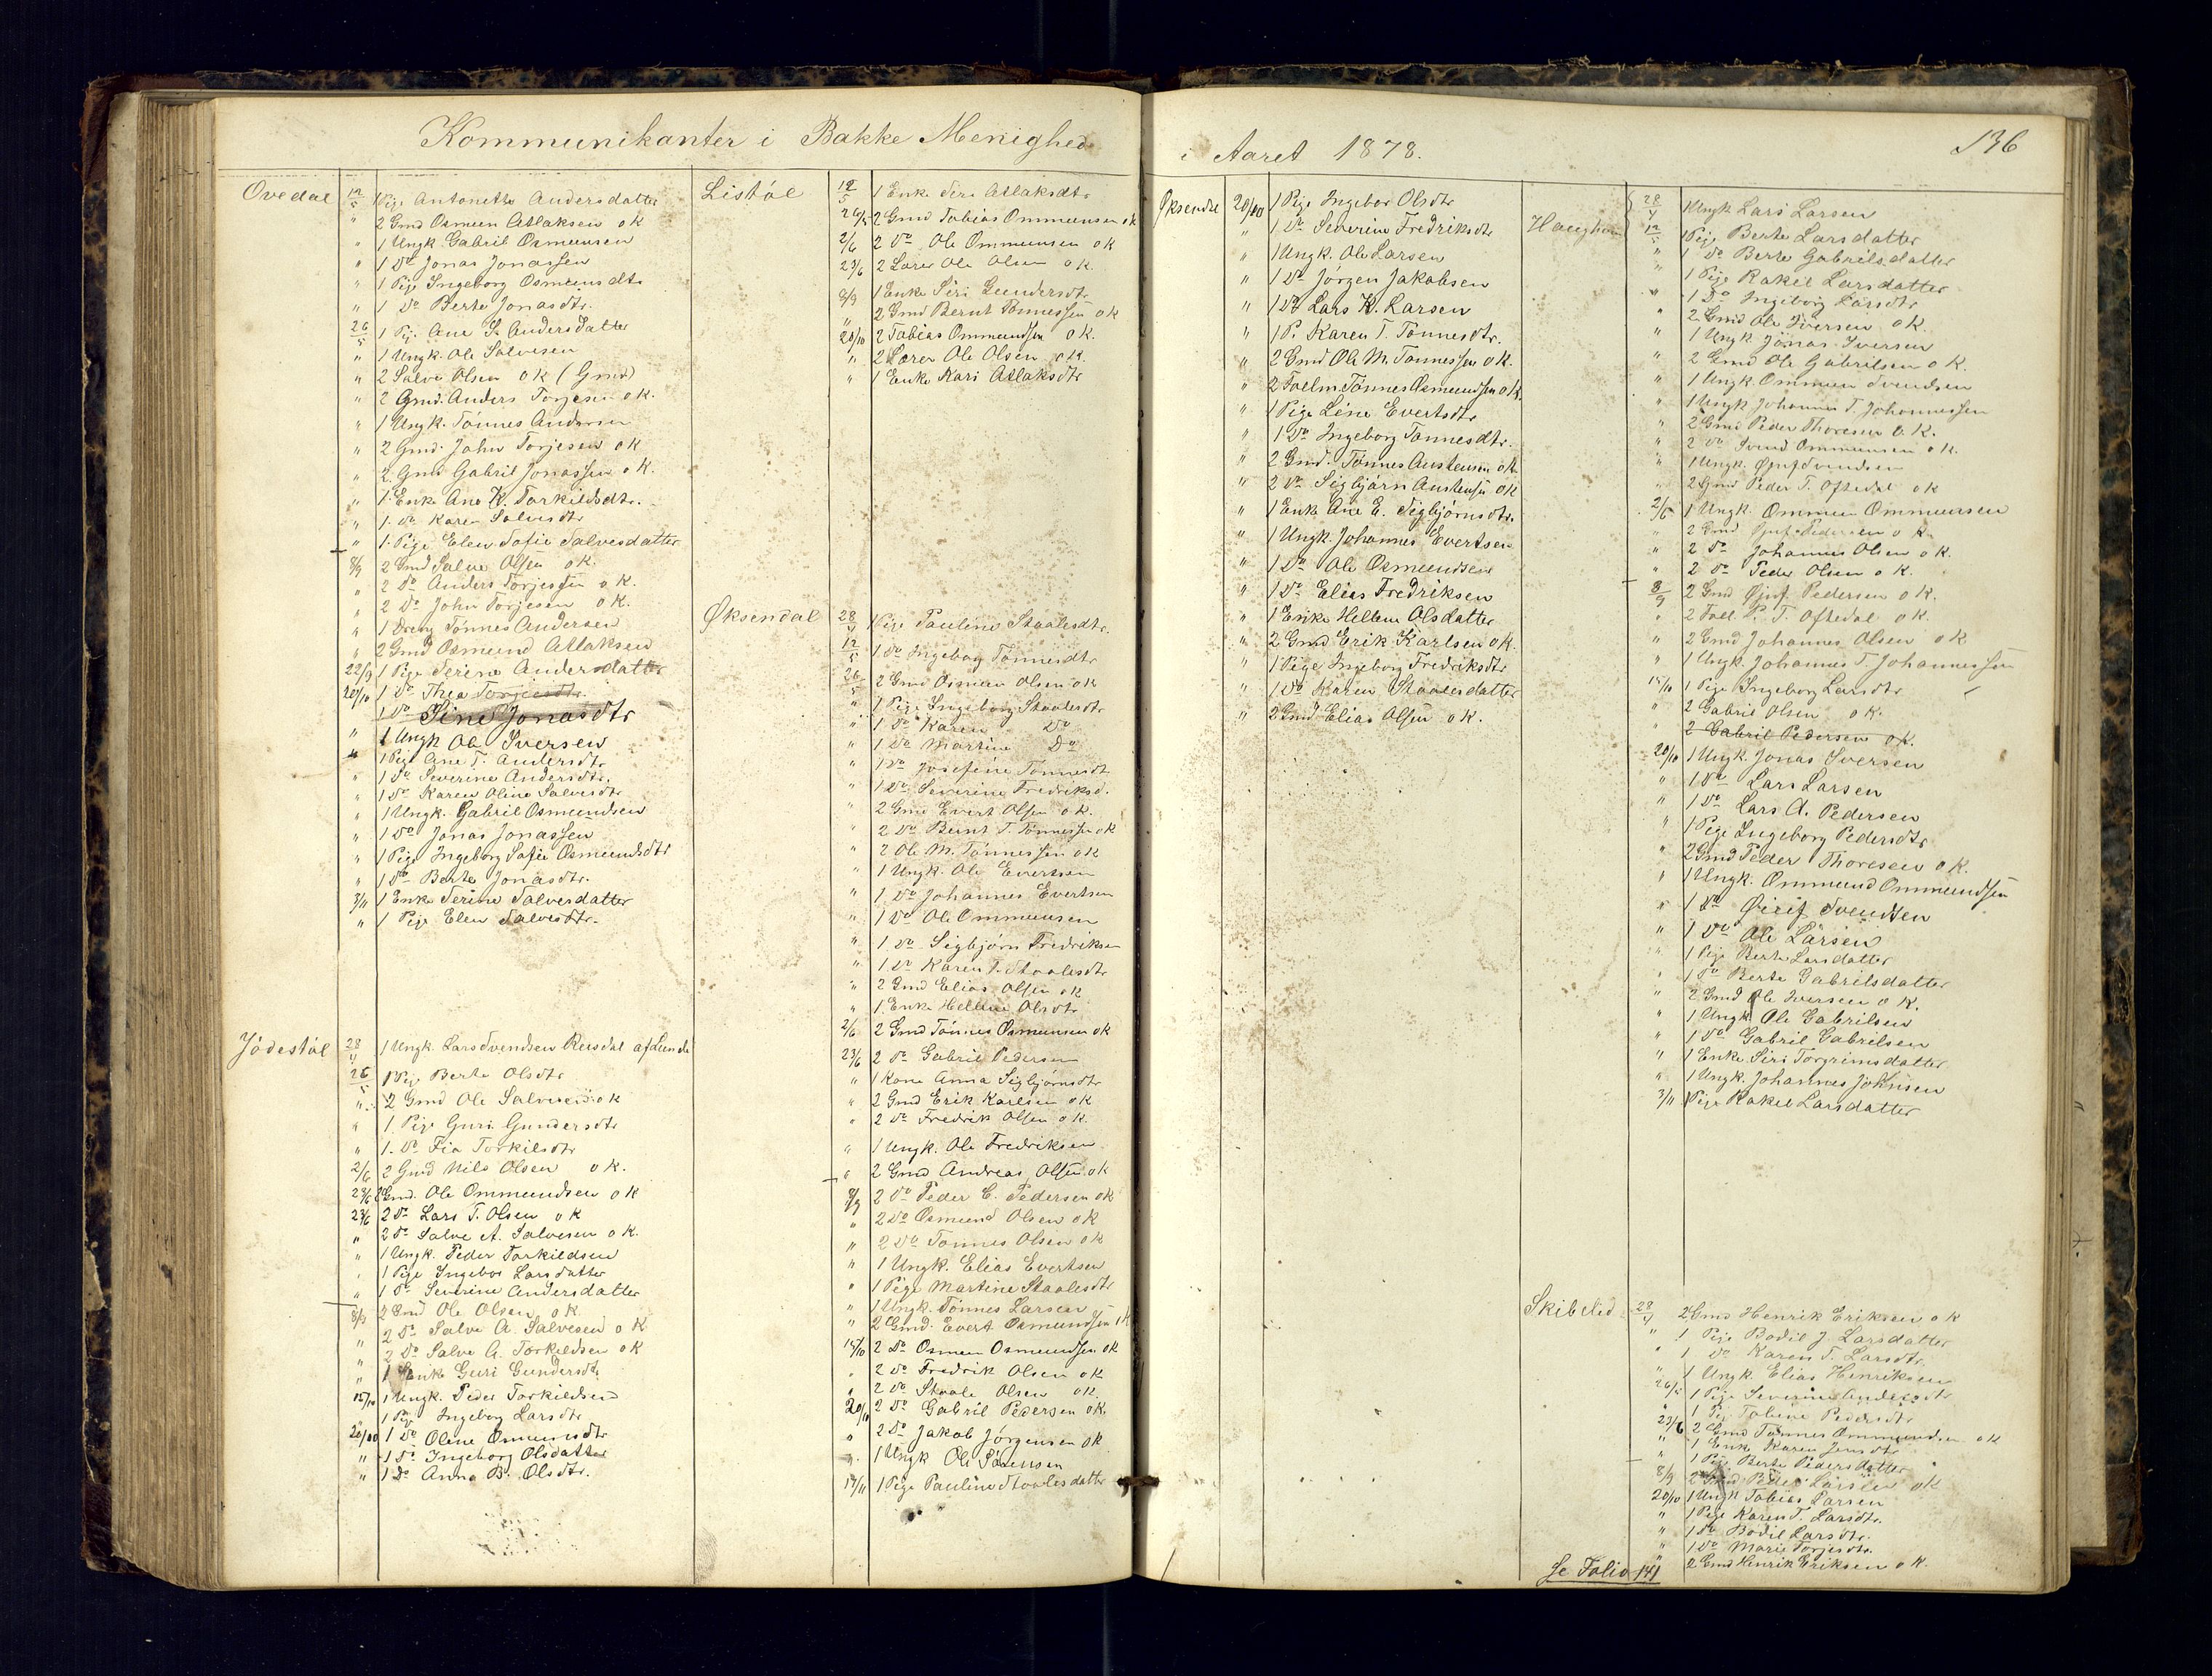 Kommunikanter i Bakke Menighed
i Aaret 1878.
136
Ovedal
12/5 1 Pige Antonette Andersdatter
" 2 Gmd Osmun Atlaksen o K
" 1 Ungk. Gabril Osmunsen
" 1 Do Jonas Jonassen
" 1 Pige Ingeborg Osmunsdtr
" 1 Do Berte Jonasdtr.
26/5 1 Pig. Ane S. Andersdatter
" 1 Ungk. Ole Salvesen
" 2 Salve Olsen o K (Gmd)
" 2 Gmd. Anders Torjesen o K.
" 1 Ungk. Tønnes Andersen
" 2 Gmd. John Torjesen o K
" 2 Gmd Gabril Jonassen o K.
" 1. Enke Ane K. Torkildsdtr.
" 1. Do Karen Salvesdtr
" 1. Pige Elen Sofie Salvesdatter
8/9 2 Gmd Salve Olsen o K.
" 2 Do Anders Torjesen o K.
" 2 Do John Torjesen o K.
" 1 Dreng Tønnes Andersen
" 2 Gmd Osmund Atlaksen
22/9 1 Pige Serine Andersdatter
20/10 1 Do Thea Torjesdtr.
1 Do Sine Jonasdtr
" 1 Ungk Ole Iversen
" 1 Pige Ane T. Andersdtr
" 1 Do Severine Andersdtr.
" 1 Do Karen Oline Salvesdtr
" 1 Ungk. Gabril Osmundsen
" 1 Do Jonas Jonassen
" 1 Pige Ingeborg Sofie Osmundsdtr
" 1 Do Berte Jonasdtr.
3/11 1 Enke Serine Salvesdatter
" 1 Pige Elen Salvesdtr.
Jødestøl
28/4 1 Ungk. Lars Svendsen Rusdal af Lunde
26/5 1 Pige Berte Olsdtr
" 2 Gmd Ole Salvesen o K
" 1. Pige Guri Gundersdtr
" 1. Do Fia Torkilsdtr
2/6 2 Gmd Nils Olsen o K.
23/6 2 Gmd. Ole Ommundsen o K
23/6 2 Do Lars T. Olsen o K
" 2 Do Salve A. Salvesen o K.
" 1 Ungk. Peder Torkildsen
" 1 Pige Ingebor Larsdatter
" 1 Do Severine Andersdatter
8/9 2 Gmd Ole Olsen o K
" 2 Do Salve A. Salvesen o K
" 2 Do Salve A. Torkildsen o K
" 1 Enke Guri Gundersdtr
15/10 1 Ungk. Peder Torkildsen
" 1 Pige Ingeborg Larsdtr
20/10 1 Do Oline Omunsdtr
" 1 Do Ingeborg Olsdatter
" 1 Do Anna B. Olsdtr.
Listøl
12/5 1 Enke Siri Atlaksdtr
26/5 2 Gmd Tobias Ommunsen o K
2/6 2 Do Ole Ommunsen o K
23/6 2 Lærer Ole Olsen o K.
8/9 1 Enke Siri Gundersdtr
" 2 Gmd Bernt Tønnessen o K
20/10 2 Tobias Ommundsen o K.
" 2 Lærer Ole Olsen o K
" 1 Enke Kari Atlaksdtr
Øksendal
28/4 1 Pige Pauline Staalesdtr.
12/5 1 Do Ingeborg Tønnesdtr
26/5 2 Gmd Osmun Olsen o K
" 1 Pige Ingeborg Staalesdtr
" 1 Do Karen Do
" 1 Do Martine Do
" 1 Do Josefine Tønnesdt
" 1 Do Severine Fredriksd.
" 2 Gmd Evert Olsen o K.
" 2 Do Bernt T. Tønnessen o K
" 2 Ole M. Tønnessen o K
" 1 Ungk. Ole Evertsen
" 1 Do Johannes Evertsen
" 1 Do Ole Ommunsen
" 1 Do Sigbjørn Fredriksen
" 1 Do Karen T. Staalesdtr
" 2 Gmd Elias Olsen o K
" 1. Enke Hellene Olsdtr
2/6 2 Gmd Tønnes Osmunsen o K
23/6 2 Do Gabril Pedersen
" 1 Kone Anna Sigbjørnsdtr
" 2 Gmd Erik Karlsen o K
" 2 Do Fredrik Olsen o K.
" 1 Ungk. Ole Fredriksen
" 2 Gmd Andreas Olsen o K
8/9 2 Do Peder E. Pedersen o K
" 2 Do Osmund Olsen o K
" 2 Do Tønnes Olsen o K
" 1 Ungk. Elias Evertsen
" 1 Pige Martine Staalesdtr
" 1 Ungk. Tønnes Larsen
" 2 Gmd. Evert Osmundsen o K
15/10 2 Do Osmun Osmundsen o K
" 2 Do Fredrik Olsen o K
" 2 Do Staale Olsen o K.
20/10 2 Do Gabril Pedersen o K.
" 2 Do Jakob Jörgensen o K
" 1 Ungk Ole Sörensen
17/11 1 Pige Pauline Staalesdatter
Øksendal
20/10 1 Pige Ingebor Olsdtr
" 1 Do Severine Fredriksdtr
" 1 Ungk. Ole Larsen
" 1 Do Jörgen Jakobsen
" 1 Do Lars K. Larsen
" 1 P. Karen T. Tønnesdtr.
" 2 Gmd Ole M. Tønnessen o K.
" 2 Foelm. Tönnes Osmundsen o K.
" 1 Pige Lene Evertsdtr
" 1 Do Ingeborg Tønnesdtr.
" 2 Gmd. Tønnes Austensen o K
" 2 Do Sigbjørn Austensen o K
" 1 Enke Ane E. Sigbjørnsdtr.
" 1 Ungk. Johannes Evertsen
" 1 Do Ole Osmundsen
" 1 Do Elias Fredriksen
" 1 Enke Hellene Olsdatter
" 2 Gmd Erik Karlsen o K.
" 1 Pige Ingeborg Fredriksdtr
" 1 Do Karen Staalesdatter
" 2 Gmd Elias Olsen o K.
Haughom
28/4 1 Ungk Lars Larsen
12/5 1 Pige Berte Larsdatter
" 1 Do Berte Gabrilsdatter
" 1 Pige Rakel Larsdatter
" 1 Do Ingeborg Larsdtr
" 2 Gmd Ole Iversen o K.
" 1 Ungk Jonas Iversen
" 2 Gmd Ole Gabrilsen o K.
" 1 Ungk Ommun Svendsen
" 1 Ungk Johannes T. Johannessen
" 2 Gmd Peder Thoresen o. K.
" 2 Do Svend Ommunsen o K.
" 1 Ungk. Øjuf Svendsen
" 2 Gmd Peder T. Oftedal o K
2/6 1 Ungk. Ommun Ommunsen
" 2 Gmd Øjuf Pedersen o K.
" 2 Do Johannes Olsen o K.
" 2 Do Peder Olsen o K.
8/9 2 Gmd Øjuf Pedersen o K.
" 2 Foel. P. T. Oftedal o K.
" 2 Gmd Johannes Olsen o K
" 1 Ungk. Johannes T. Johannessen
15/10 1 Pige Ingeborg Larsdtr
" 2 Gabril Olsen o K.
2 Gabril Pedersen o K.
20/10 1 Ungk. Jonas Iversen
" 1 Do Lars Larsen
" 1 Do Lars A. Pedersen
" 1 Pige Ingeborg Pedersdtr
" 2 Gmd Peder Thoresen o K.
" 1 Ungk. Ommund Ommundsen
" 1 Do Svendsen
" 1 Do Ole Larsen
" 1 Pige Berte Larsdatter
" 1 Do Berte Gabrilsdatter
" 2 Gmd Ole Iversen o K.
" 1 Ungk. Ole Gabrilsen
" 1 Do Gabril Gabrilsen
" 1 Enke Siri Torgrimsdatter
" 1 Ungk. Johannes Johnsen
3/11 1 Pige Rakel Larsdatter
Skibelid
28/4 2 Gmd Henrik Eriksen o K
" 1 Pige Bodil J. Larsdatter
" 1 Do Karen T. Larsdtr.
" 1 Ungk Elias Henriksen
26/5 1 Pige Severine Andersdtr
" 1 Pig Tobine Pedersdtr
23/6 2 Gmd Tønnes Ommundsen o K
" 1 Enke Karen Jensdtr
" 1 Pige Berte Pedersdatter
8/9 2 Gmd Peder Larsen o K
20/10 1 Ungk Tobias Larsen
" 1 Pige Karen T. Larsdtr.
" 1 Do Bodil Larsdtr.
" 1 Do Marie Torjesdtr.
" 2 Gmd Henrik Eriksen o K.
Se Folio 141